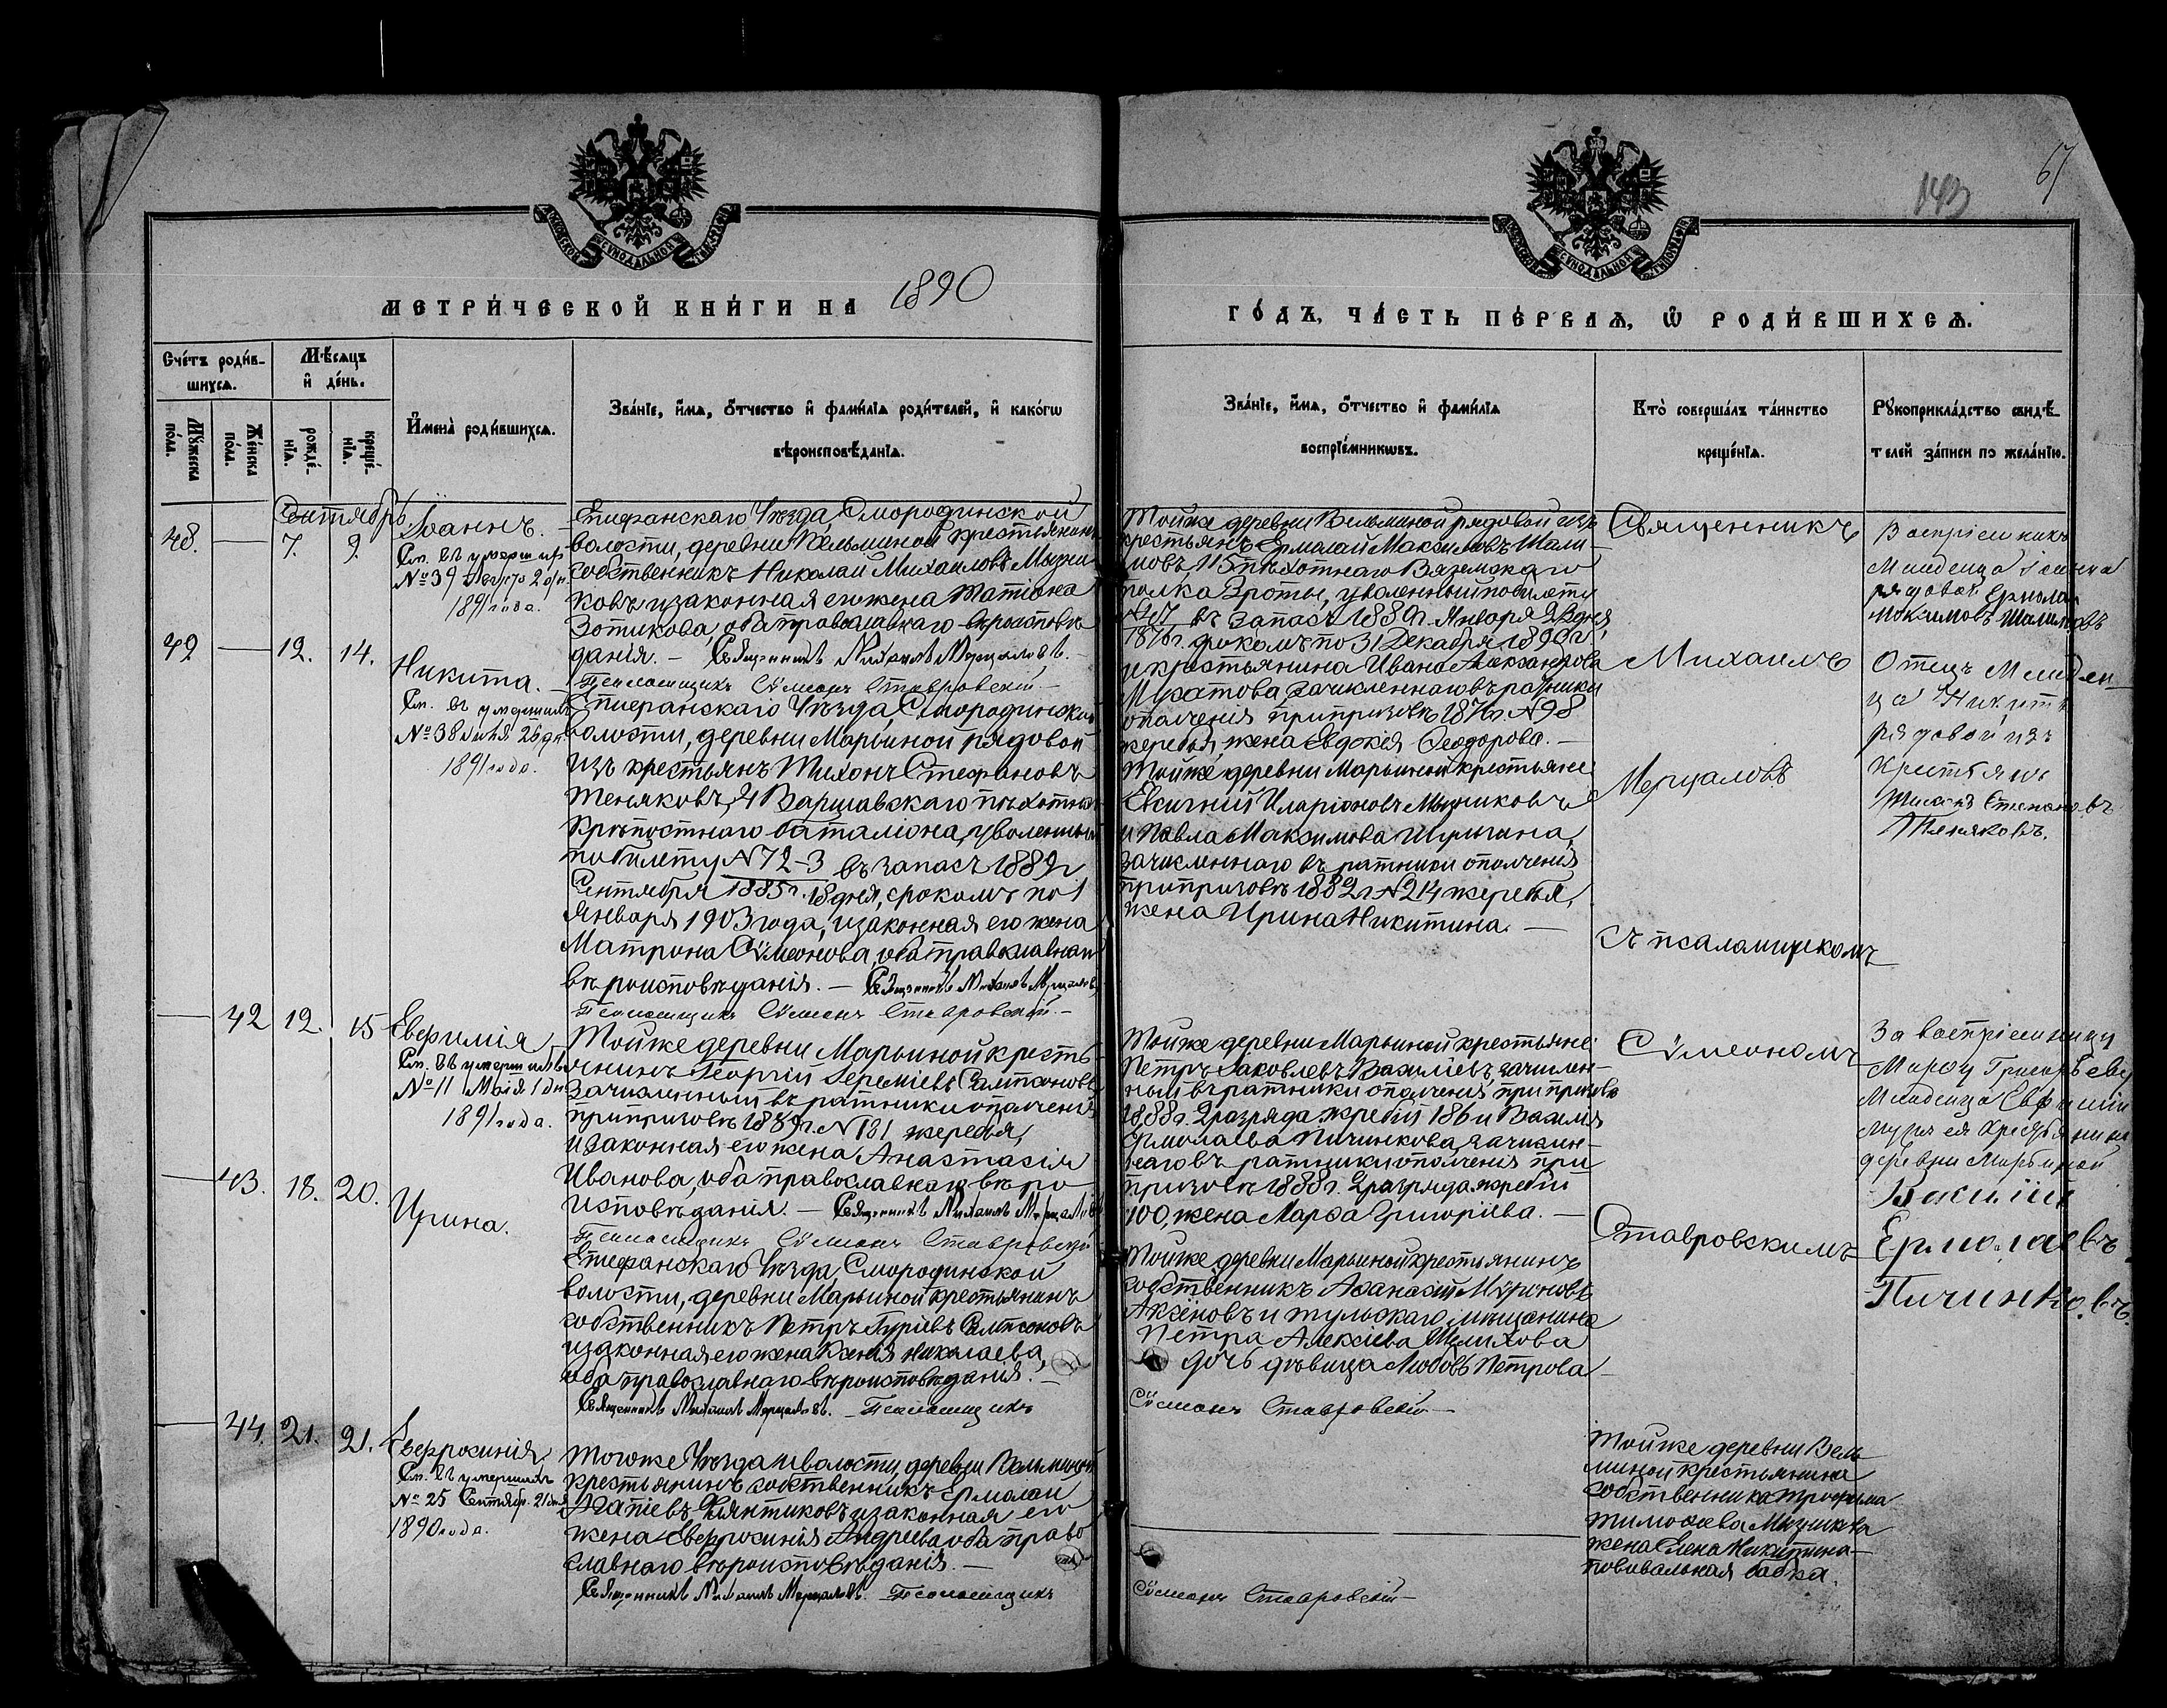 67
143
МОСКОВСКОЙ СѴНОДАЛЬНОЙ ТИПОГРАФІИ
МОСКОВСКОЙ СѴНОДАЛЬНОЙ ТИПОГРАФІИ
МЕТРИ́ЧЕСКОЙ КНИ́ГИ НА 1890
ГО́ДЪ, ЧА́СТЬ ПЕ́РВАѦ, Ѡ҆ РОДИ́ВШИХСѦ.
Сче́тъ роди́в-
шихсѧ.
Мѣ́сѧцъ
и҆ де́нь.
Мꙋ́жеска
по́ла.
Же́нска
по́ла.
рожде́-
нїѧ.
креще́-
нїѧ.
И҆мена̀ роди́вшихсѧ.
Зва́нїе, и҆́мѧ, ѻ҆́тчество и҆ фами́лїѧ роди́телей, и҆ како́гѡ
вѣроисповѣ́данїѧ.
Зва́нїе, и҆́мѧ, ѻ҆́тчество и҆ фами́лїѧ
воспрїе́мникѡвъ.
Кто̀ соверша́лъ та́инство
креще́нїѧ.
Рꙋкоприкла́дство свидѣ́-
телей за́писи по жела́нїю.
Сентябрь
48.
—
7.
9.
Іоаннъ.
См. въ умерших
№ 39
1891 года.
Епифанскаго Уѣзда, Смородинской
волости, деревни Вельминой крестьянинъ
собственникъ Николай Михаиловъ Мызни-
ковъ и законная его жена Татіана
Зотикова, оба православнаго вѣроисповѣ
данія. — Священникъ Михаилъ Мерцаловъ. —
Псаломщикъ Сѵмеонъ Ставровскій —
Тойже деревни Вельминой рядовой изъ
крестьянъ Ермолай Максимовъ Шали-
мовъ, 115 пѣхотнаго Вяземскаго
полка роты, уволенный по билету
въ запасъ 1889 г. Января дня,
1876 г. срокомъ по 31 Декабря 1890 г.
и крестьянина Ивана Александрова
зачисленнаго въ ратники
ополченія при призывѣ 1876 г. № 98
жеребья, жена Евдокія Ѳеодорова. —
Священникъ
Воспріемникъ
Младенца Іоанна
рядовой Ермолай
Максимовъ Шалимовъ
49
—
12.
14.
Никита.
См. въ умершихъ
№ 38
1891 года.
Епифанскаго Уѣзда, Смородинской
волости, деревни Марьиной рядовой
изъ крестьянъ Тихонъ Стефановъ
Теняковъ, 4 Варшавскаго пѣхотнаго
Крѣпостнаго баталіона, уволенный
по билету № 72-3 въ запасъ 1889 г.
Сентября 1885 г. 18 дня, срокомъ по 1
Января 1903 года, и законная его жена
Матрона Сѵмеонова, оба православнаго
вѣроисповѣданія. — Священникъ Михаилъ Мерцаловъ,
Псаломщикъ Сѵмеонъ Ставровскій. —
Тойже деревни Марьиной крестьяне
Евсигній Иларіоновъ Мызниковъ
и Павла Максимова
зачисленнаго въ ратники ополченія
при призывѣ 1882 г. № 214 жеребья,
жена Ирина Никитина. —
Михаилъ
Мерцаловъ
съ псаломщикомъ
Отецъ Младен-
ца Никиты
рядовой изъ
Крестьянъ
Тихонъ Степановъ
Теняковъ.
—
42
12.
15
Евфимія
См. въ умершихъ
№ 11 Маія 1 дня
1891 года.
Тойже деревни Марьиной кресть-
янинъ Георгій Іереміевъ Сампсоновъ
зачисленный въ ратники ополченія
при призывѣ 1889 г. № 181 жеребья,
и законная его жена Анастасія
Иванова, оба православнаго вѣро
исповѣданія. — Священникъ Михаилъ Мерцаловъ
Псаломщикъ Сѵмеонъ Ставровскій
Тойже деревни Марьиной крестьяне
Петръ Іаковлевъ Василіевъ, зачислен-
ный въ ратники ополченія при призывѣ
1888 г. 2 разряда жребій 186 и Василія
Ермолаева Пичинкова, зачислен-
наго въ ратники ополченія при
призывѣ 1888 г. 2 разряда жребій
100, жена Марѳа Григоріева. —
Сѵмеономъ
За воспріемницу
Марѳу Григорьеву
Младенца Евфиміи
мужъ ея Крестьянинъ
деревни Марьиной
Василій
Ермолаевъ
Пичинковъ.
—
43.
18.
20.
Ирина.
Епифанскаго Уѣзда, Смородинской
волости, деревни Марьиной крестьянинъ
собственникъ Петръ Гуріевъ Сампсоновъ
и законная его жена Ксенія Николаева,
оба православнаго вѣроисповѣданія. —
Священникъ Михаилъ Мерцаловъ. — Псаломщикъ
Тойже деревни Марьиной крестьянинъ
собственникъ Аѳанасій Мѵроновъ
Аксеновъ и тульскаго мѣщанина
Петра Алексіева Шелихова
дочь дѣвица Любовь Петрова —
Сѵмеонъ Ставровскій —
Ставровскимъ
—
44.
21.
21.
Евфросинія,
См. въ умершихъ
№ 25 Сентябр. 21 дня
1890 года.
Тогоже Уѣзда и волости, деревни Вельминой
крестьянинъ собственникъ Ермолай
Агапіевъ и законная его
жена Евфросинія Андреева оба право
славнаго вѣроисповѣданія. —
Священникъ Михаилъ Мерцаловъ. Псаломщикъ
Сѵмеонъ Ставровскій —
Тойже деревни Вель
миной крестьянина
собственника Трофима
Тимоѳеева Мызникова
жена Елена Никитина —
повивальная бабка.